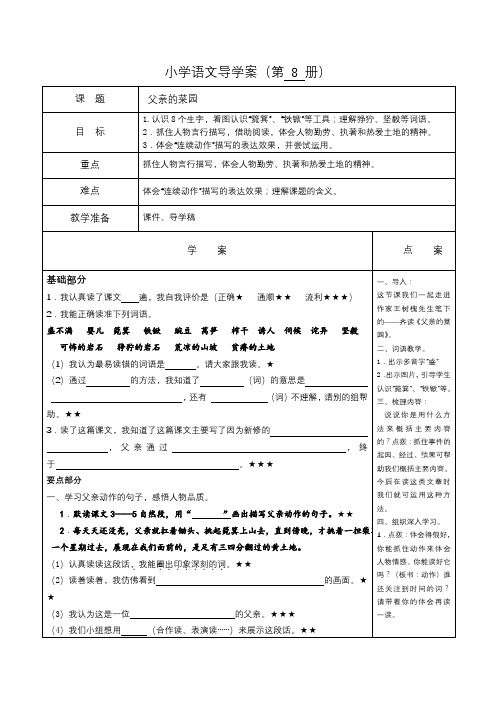 小学语文导学案（第 8 册）
课 题
父亲的菜园
目 标
1.认识8个生字，看图认识“篼箕”、“铁锨”等工具；理解狰狞、坚毅等词语。
2．抓住人物言行描写，借助阅读，体会人物勤劳、执著和热爱土地的精神。
3．体会“连续动作”描写的表达效果，并尝试运用。
重点
抓住人物言行描写，体会人物勤劳、执著和热爱土地的精神。
难点
体会“连续动作”描写的表达效果；理解课题的含义。
教学准备
课件、导学稿
学 案
点 案
基础部分
1．我认真读了课文 遍，自我评价是（正确★ 通顺★★ 流利★★★）
2．我能正确读准下列词语。
盛不满 婴儿 篼箕 铁锨 豌豆 莴笋 榨干 诱人 伺候 诧异 坚毅
可怖的岩石 狰狞的岩石 荒凉的山坡 贫瘠的土地
（1）我认为最易读错的词语是 。请大家跟我读。★
（2）通过 的方法，我知道了 （词）的意思是
，还有 （词）不理解，请别的组帮
助。★★
3．读了这篇课文，我知道了这篇课文主要写了因为新修的
，父亲通过 ，终
于 。★★★
要点部分
一、学习父亲动作的句子，感悟人物品质。
1．默读课文3——5自然段，用“ ”画出描写父亲动作的句子。★★
2．每天天还没亮，父亲就扛着锄头、挑起篼箕上山去，直到傍晚，才挑着一担柴
一个星期过去，展现在我们面前的，是足有三四分翻过的黄土地。
（1）认真读读这段话，我能圈出印象深刻的词。★★
（2）读着读着，我仿佛看到 的画面。★
★
（3）我认为这是一位 的父亲。★★★
（4）我们小组想用 （合作读、表演读……）来展示这段话。★★
一、导入：
这节课我们一起走进
作家王树槐先生笔下
的——齐读《父亲的菜
园》。
二、词语教学。
1．出示多音字“盛”
2．出示图片，引导学生
认识“篼箕”、“铁锨”等。
三、梳理内容：
说说你是用什么方
法来概括主要内容
的？点拨：抓住事件的
起因、经过、结果可帮
助我们概括主要内容。
今后在读这类文章时
我们就可运用这种方
法。
四、组织深入学习。
1．点拨：体会得很好，
你能抓住动作来体会
人物情感。你能读好它
吗？（板书：动作）谁
还关注到时间的词？
请带着你的体会再读
一读。